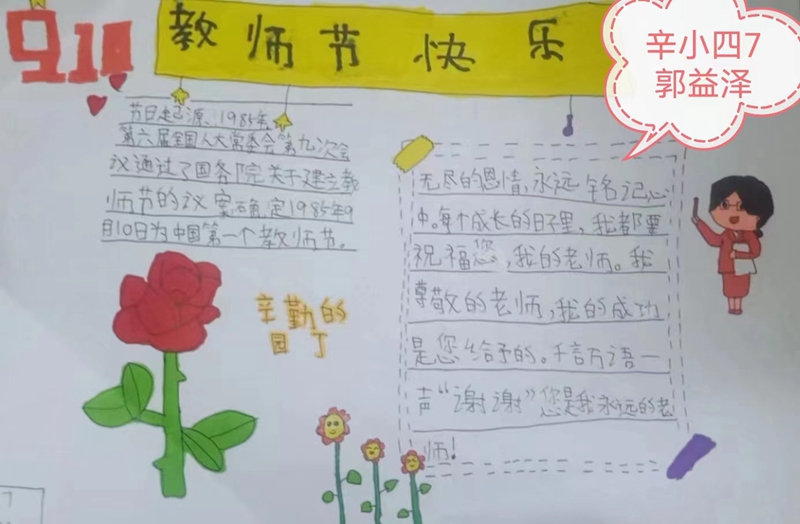 9.10
教师节快乐
辛小四7
郭益泽
节日起源:1985年,
第六届全国人大常委会第九次会
议通过了国务院关于建立教
师节的议案确定1985年9
月10日为中国第一个教师节。
无尽的恩情,永远铭记心
中。每个成长的日子里,我都要
祝福您,我的老师。我
尊敬的老师,我的成功
是您给予的。千言万语一
声“谢谢”您是我永远的老
师!
辛勤的
园丁